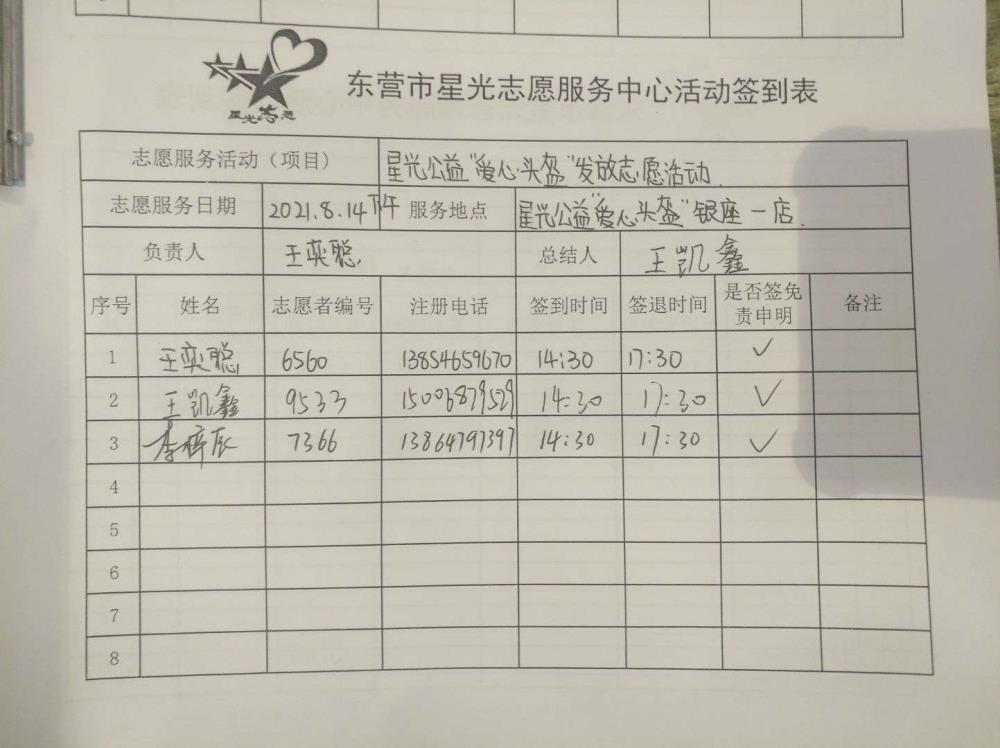 星光志愿
东营市星光志愿服务中心活动签到表
志愿服务活动（项目） 星光公益“爱心头盔”发放志愿活动.
志愿服务日期 2021.8.14下午 服务地点 星光公益“爱心头盔”银座一店.
负责人 王奕聪 总结人 王凯鑫
序号 姓名 志愿者编号 注册电话 签到时间 签退时间 是否签免责申明 备注
1 王奕聪 6560 13854659670 14:30 17:30 ✓
2 王凯鑫 9533 15006879529 14:30 17:30 ✓
3 李梓辰 7366 13864797397 14:30 17:30 ✓
4
5
6
7
8